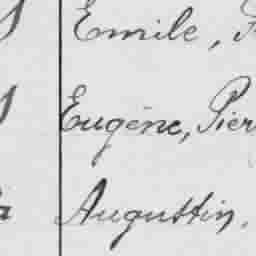 Emile,
Eugène, Pier
Augustin,